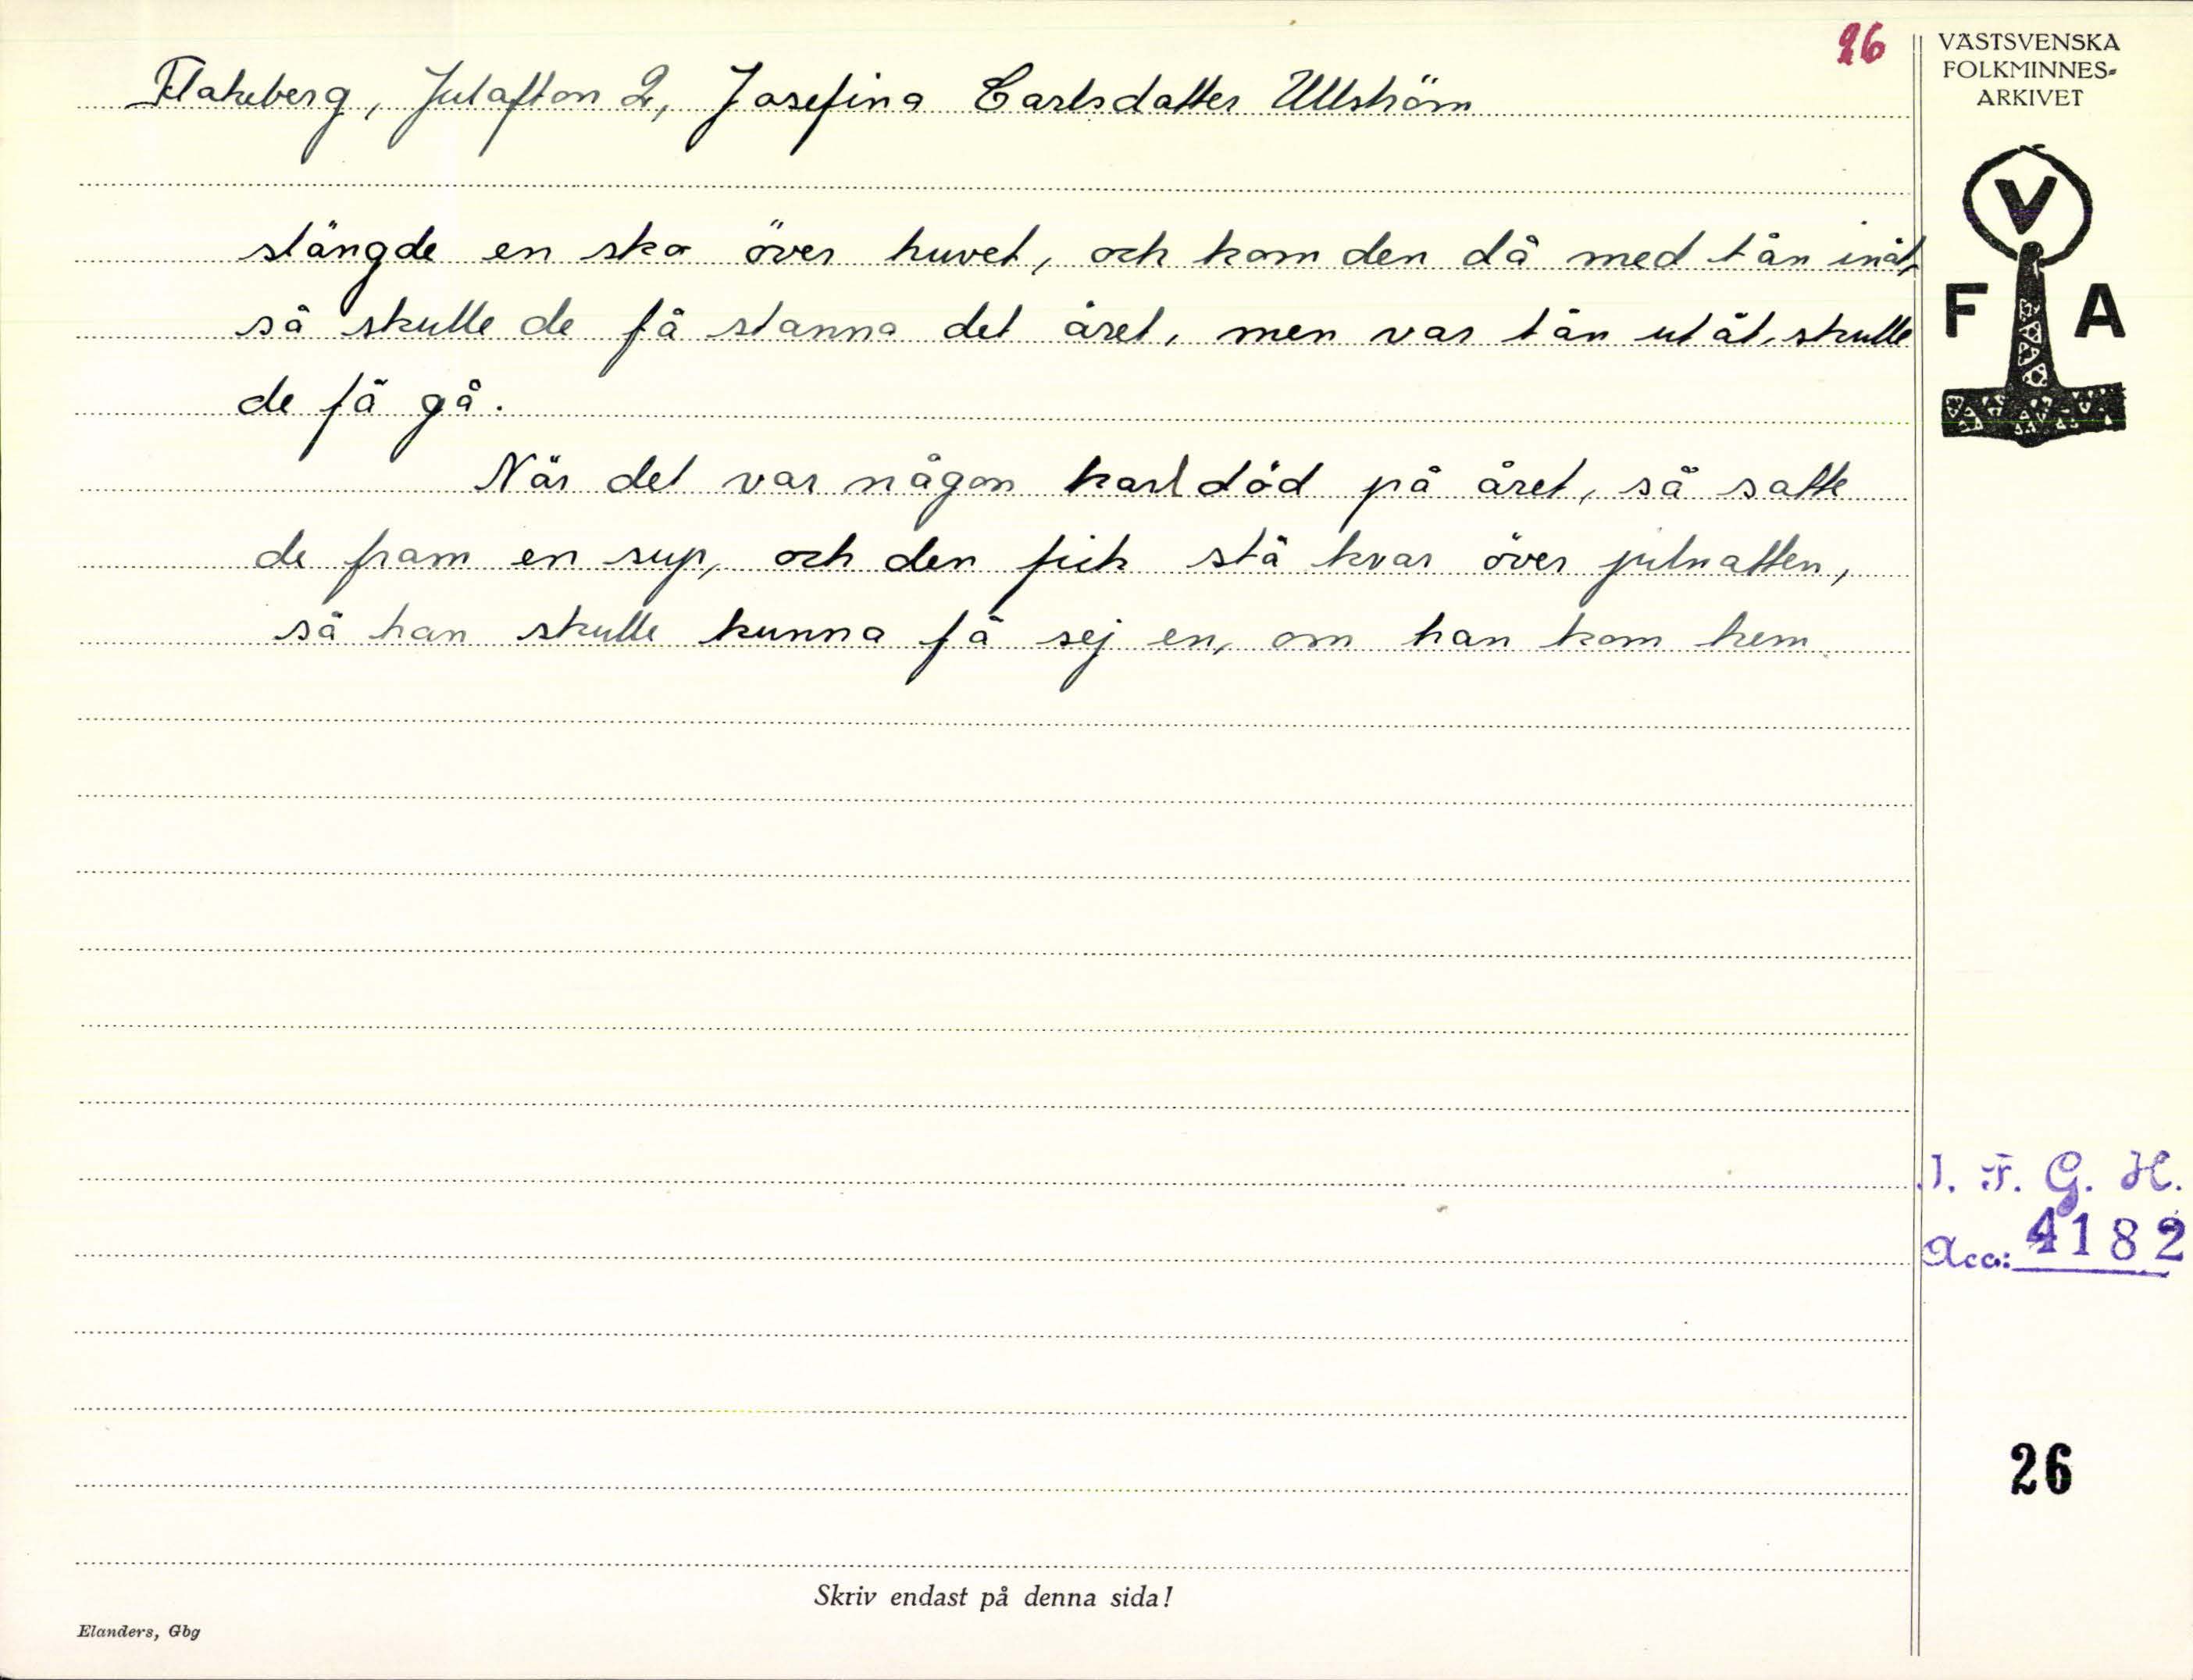 26
Flakeberg, Julafton 2, Josefina Carlsdatter Ullström
slängde en sko över huvet, och kom den då med tån inåt,
så skulle de få stanna det året, men var tån utåt, skulle
de få gå.
När det var någon karl död på året, så satte
de fram en sup, och den fick stå kvar över julnatten,
så han skulle kunna få sej en, om han kom hem.
VÄSTSVENSKA
FOLKMINNES-
ARKIVET
V
F A
I. F. G. H.
Acc: 4182
26
Skriv endast på denna sida!
Elanders, Gbg